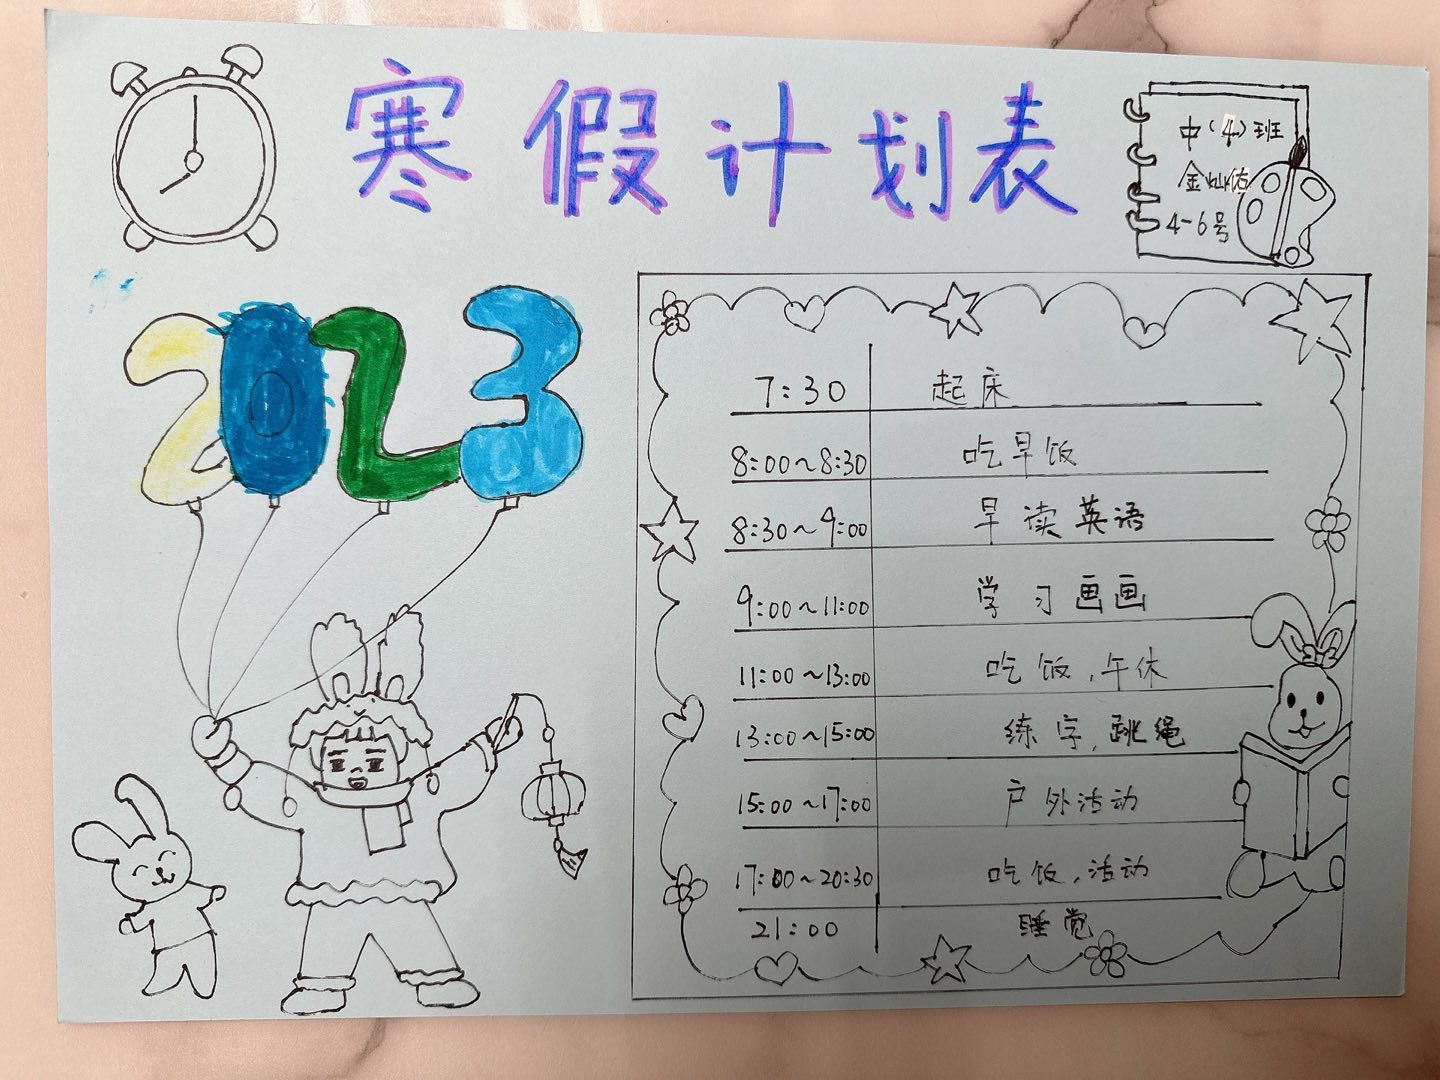 寒假计划表
中(4)班
金灿佑
4-6号
2023
7:30 起床
8:00~8:30 吃早饭
8:30~9:00 早读英语
9:00~11:00 学习画画
11:00~13:00 吃饭,午休
13:00~15:00 练字,跳绳
15:00~17:00 户外活动
17:00~20:30 吃饭,活动
21:00 睡觉